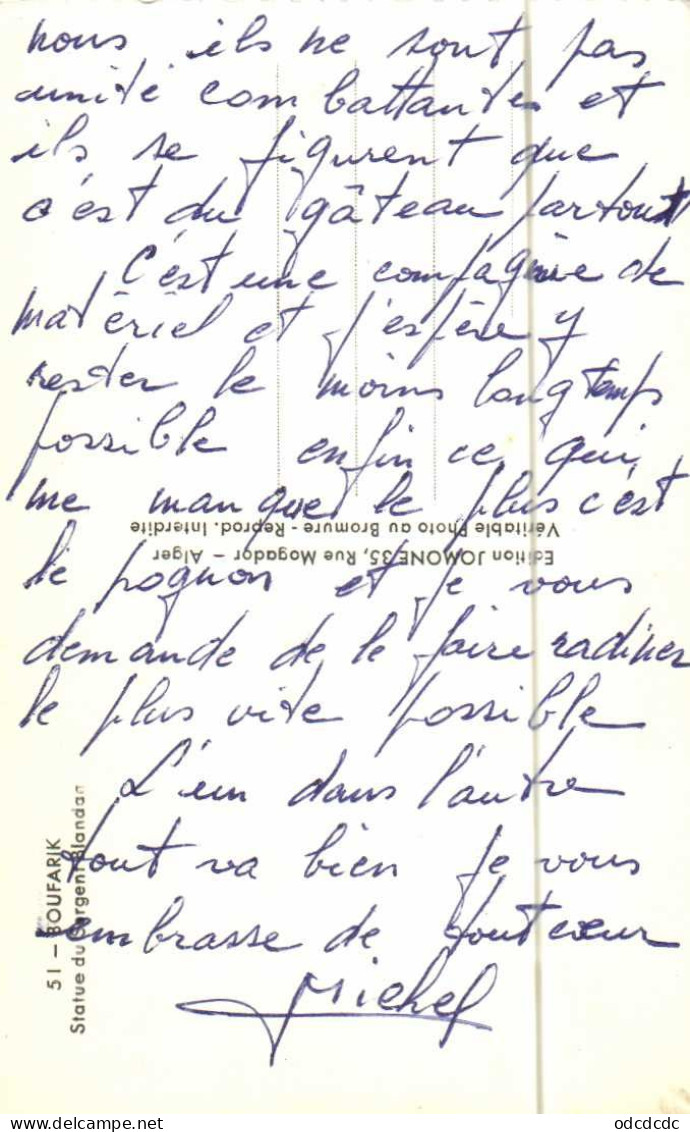 nous ils ne sont pas
unité combattantes et
ils se figurent que
c'est du gâteau partout
C'est une compagnie de
matériel et j'espère y
rester le moins longtemps
possible enfin ce qui
me manque le plus c'est
le pognon et je vous
demande de le faire radiner
le plus vite possible
L'un dans l'autre
tout va bien je vous
embrasse de tout cœur
Michel
51 - BOUFARIK
Statue du Sergent Blandan
Edition JOMONE 35, Rue Mogador - Alger
Véritable Photo au Bromure - Reprod. Interdite
odcdcdc